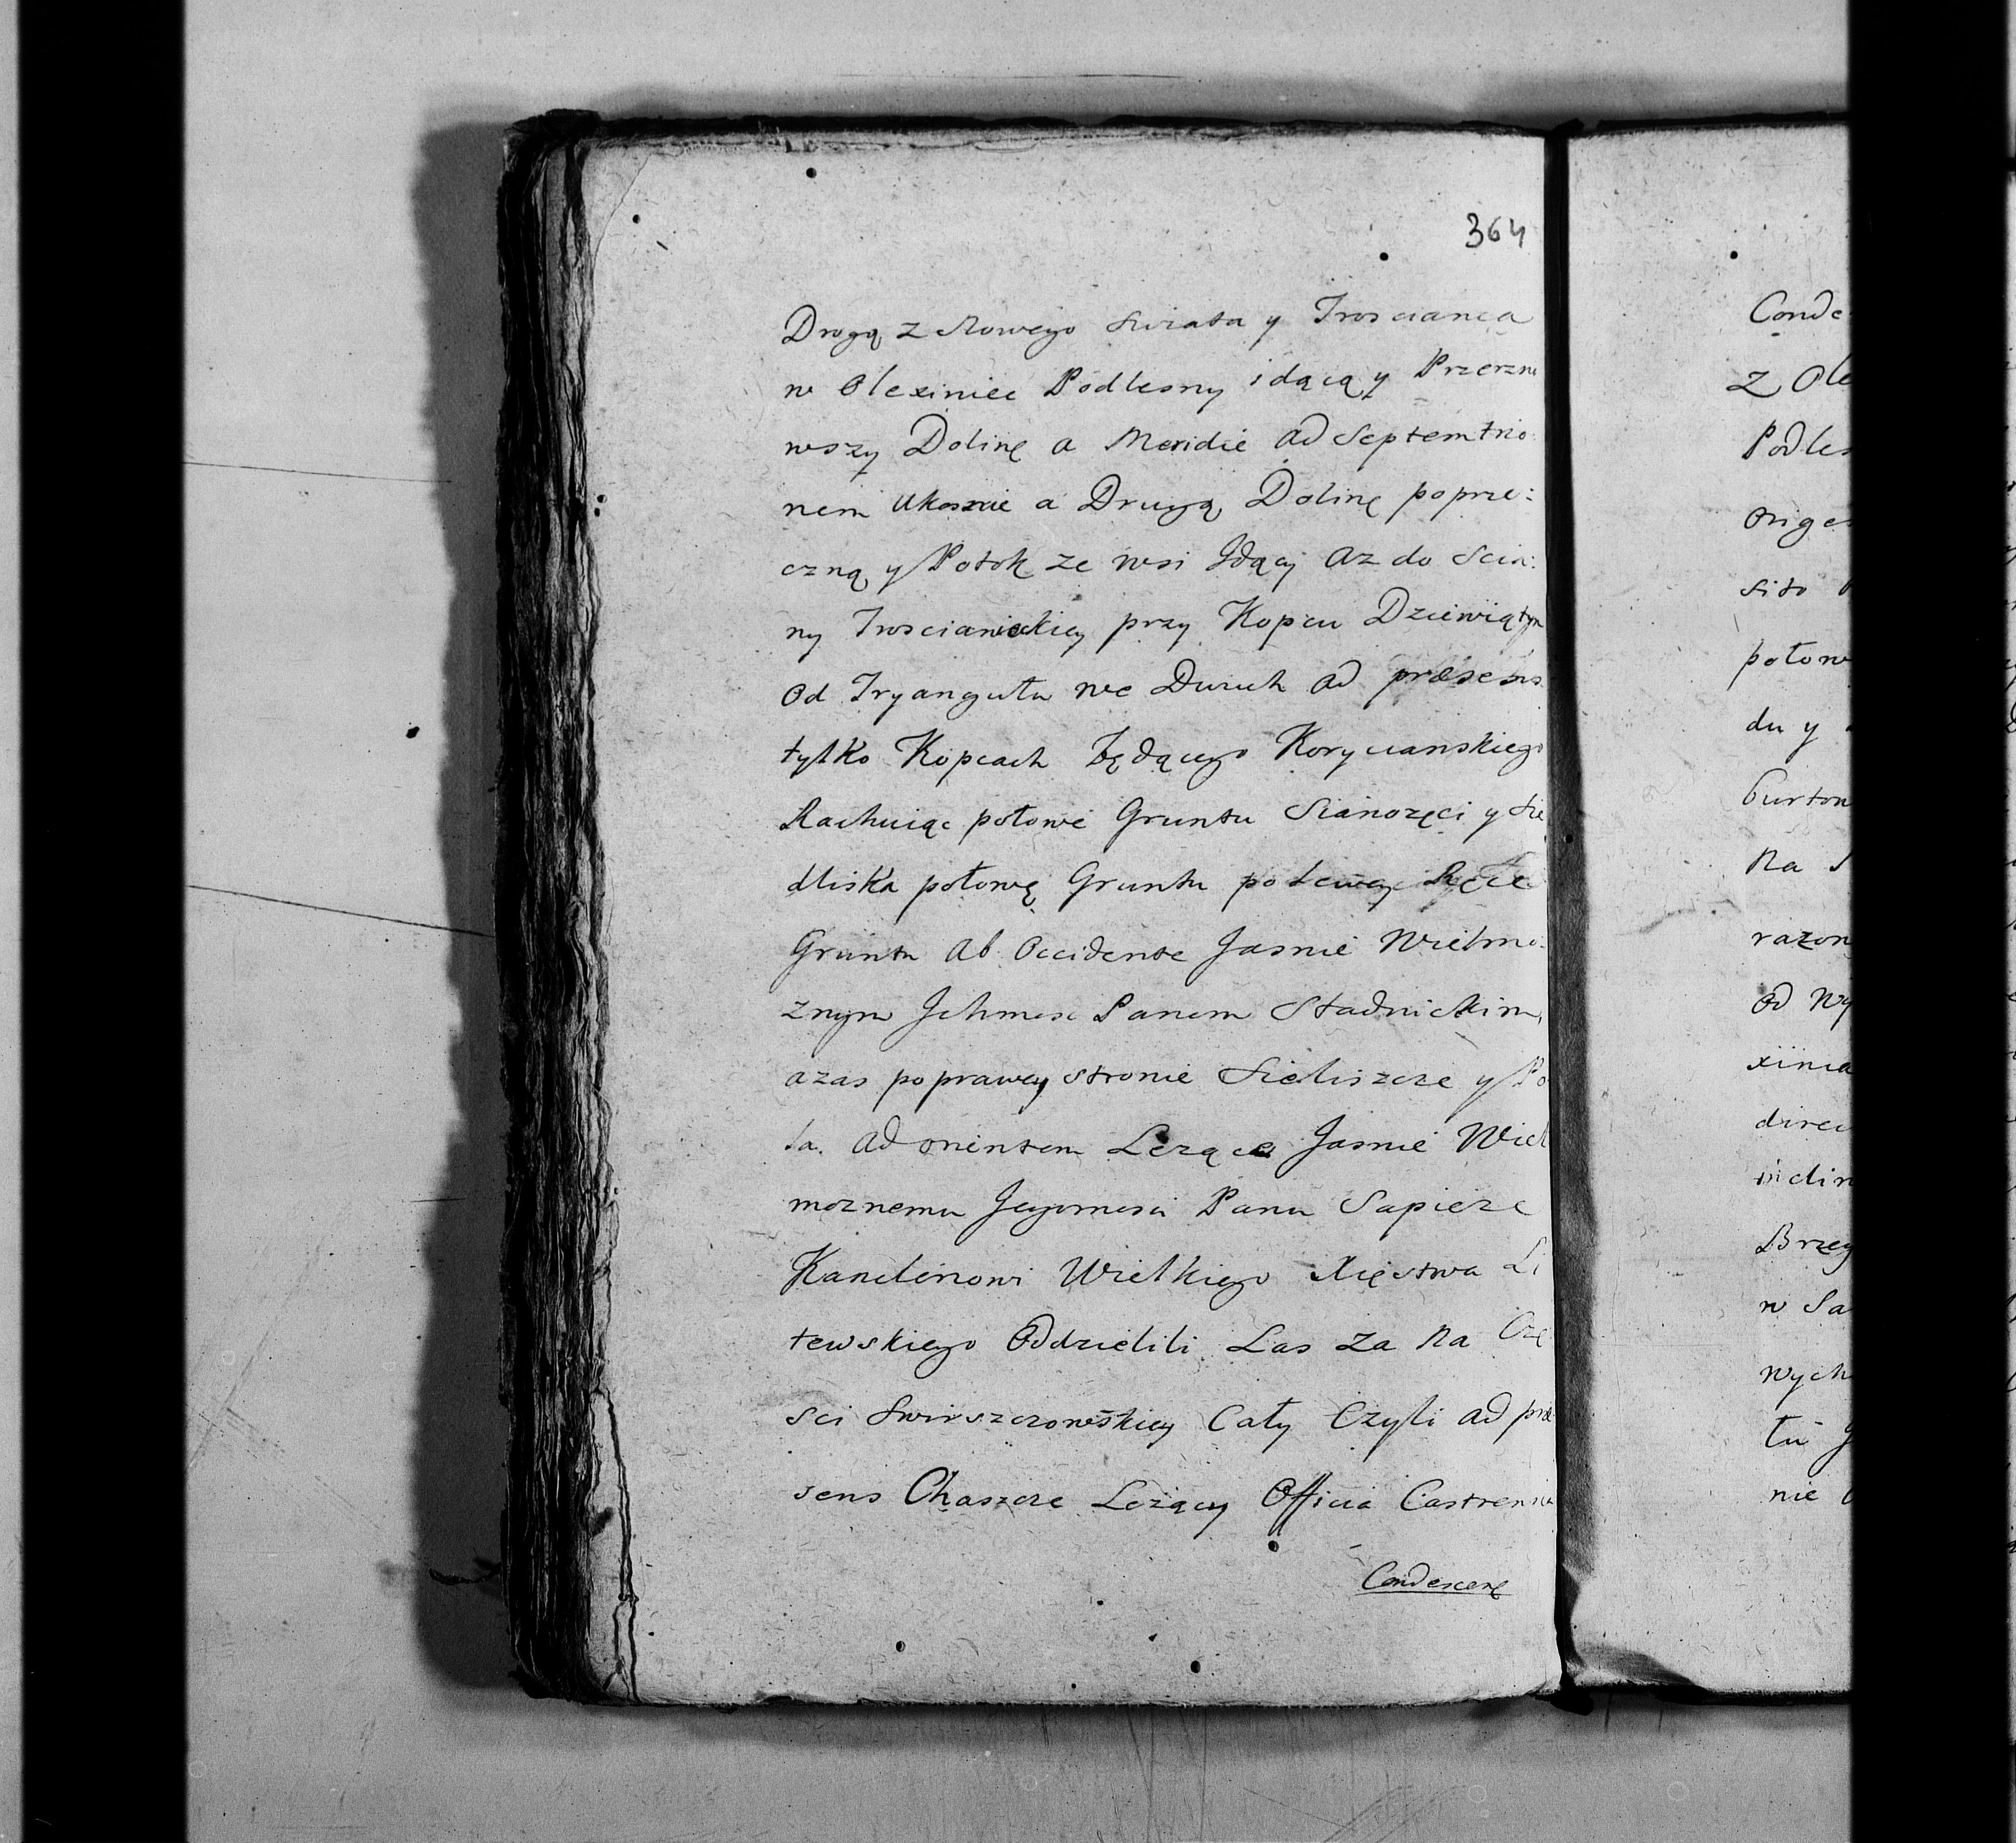 364
Drogą z Nowego Swiata y Troscianca
w Olexiniec Podlesny idącą y Przerzne
wszy Dolinę a Meridie ad Septemtrio:
nem Ukosnie a Drugą Dolinę poprze:
czną y Potok ze wsi Idący Az do Scia:
ny Troscianickiey przy Kopcu Dziewiątym
Od Tryangułu we Dwuch ad præsens
tylko Kopcach Będącego Korycianskiego
Rachuiąc połowe Gruntu Sianozęci y Sie
dliska połowę Gruntu po Lewey Ręce
Gruntu Ab Occidente Jasnie Wielmo:
znym Ichmosc Panem Stadnickim,
azas po prawey stronie Sieliszcze y Po
la. Ad orientem Lezące Jasnie Wiel
moznemu Jegomosci Panu Sapieze
Kanclerzowi Wielkiego Xięstwa Li
tewskiego Oddzielili Las Za Na Czę
sci Swirszczowskiey Cały Czyli ad præ
sens Chaszcze Leżący Officia Castrensia
Condescenę
Conde
Z Ole
Podles
Origes
sito
połow
du y
burton
Na
razon
Od Wy
xinia
direc
inclin
Brzeg
w Sa
wych
tu
nie